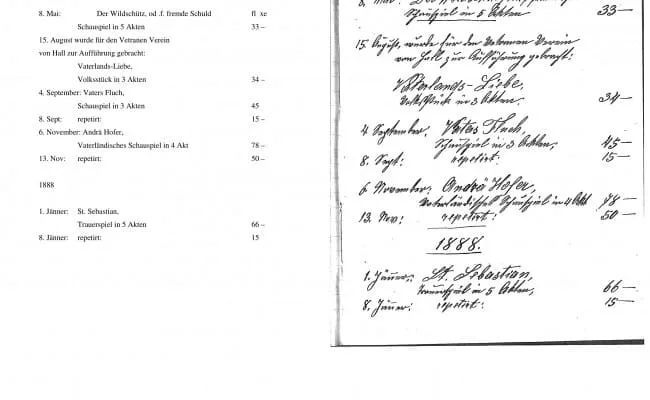 8. Mai: Der Wildschütz, od .f. fremde Schuld fl xe
Schauspiel in 5 Akten 33 –
15. August wurde für den Vetranen Verein
von Hall zur Aufführung gebracht:
Vaterlands-Liebe,
Volksstück in 3 Akten 34 –
4. September: Vaters Fluch,
Schauspiel in 3 Akten 45
8. Sept: repetirt: 15 –
6. November: Andrä Hofer,
Vaterländisches Schauspiel in 4 Akt 78 –
13. Nov: repetirt: 50 –
1888
1. Jänner: St. Sebastian,
Trauerspiel in 5 Akten 66 –
8. Jänner: repetirt: 15
Schauspiel in 5 Akten 33 —
15. August, wurde für den Vetranen Verein
von Hall zur Aufführung gebracht:
Vaterlands-Liebe,
Volksstück in 3 Akten. 34 —
4 September. Vaters Fluch,
Schauspiel in 3 Akten, 45 —
8. Sept: repetirt: 15 —
6 November: Andrä Hofer,
Vaterländisches Schauspiel in 4 Akt 78 —
13. Nov: repetirt: 50 —
1888.
1. Jänner: St. Sebastian,
Trauerspiel in 5 Akten, 66 —
8. Jänner: repetirt: 15 —